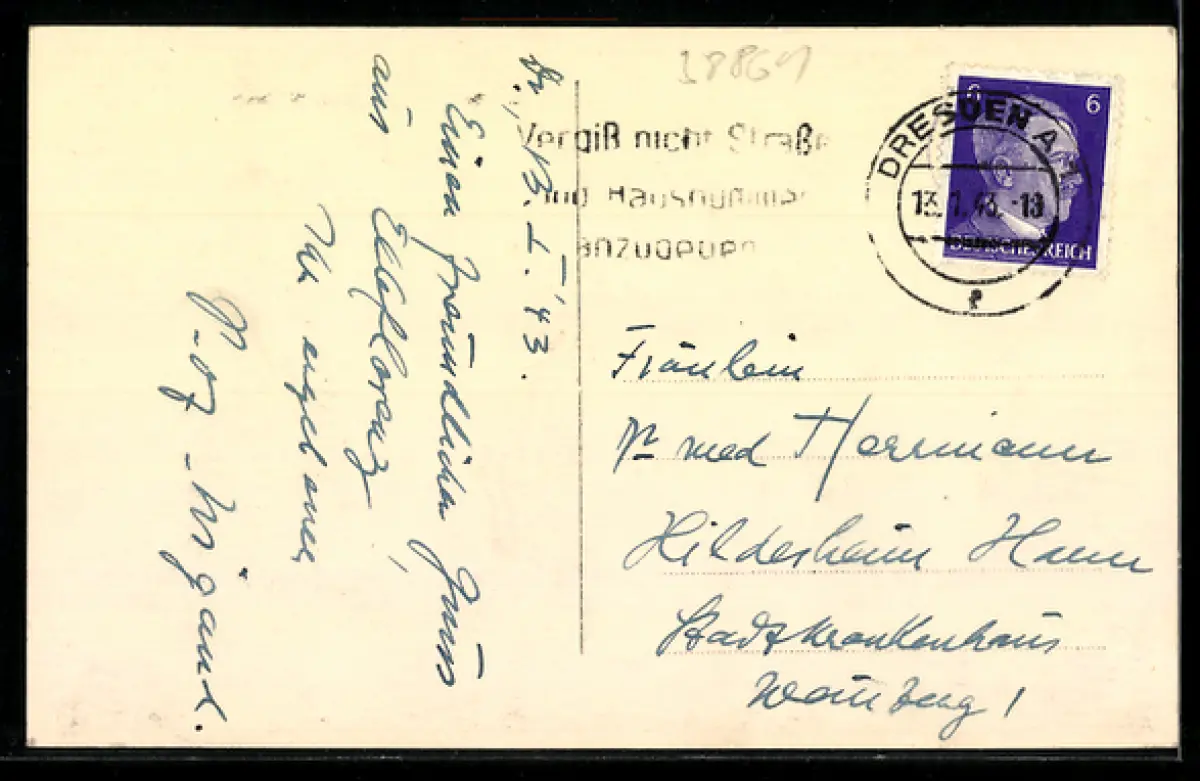 18861
6
6
DEUTSCHES REICH
DRESDEN A
13.1.43.-18
e
Vergiß nicht Straße
und Hausnummer
anzugeben
Dr., 13. I. '43.
Einen freundlichen Gruss
aus Elbflorenz,
Ihr ergebener
Fräulein
Dr med Herrmann
Hildesheim Hann
Stadtkrankenhaus
Weinberg 1